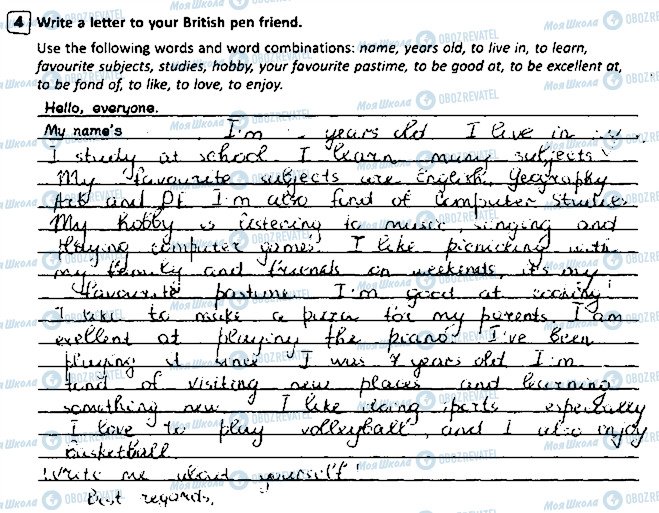 4 Write a letter to your British pen friend.
Use the following words and word combinations: name, years old, to live in, to learn,
favourite subjects, studies, hobby, your favourite pastime, to be good at, to be excellent at,
to be fond of, to like, to love, to enjoy.
Hello, everyone.
My name's I'm years old I live in
I study at school. I learn many subjects.
My favourite subjects are English, Geography
Art and PE. I'm also fond of Computer Studies
My hobby is listening to music, singing and
playing computer games. I like picnicking with
my family and friends on weekends, it's my
favourite pastime. I'm good at cooking
I like to make a pizza for my parents. I am
exellent at playing the piano. I've been
playing it since I was 7 years old I'm
fond of visiting new places and learning
something new. I like doing sports especially
I love to play volleyball, and I also enjoy
basketball.
Write me about yourself!
Best regards,
Моя Школа OBOZREVATEL